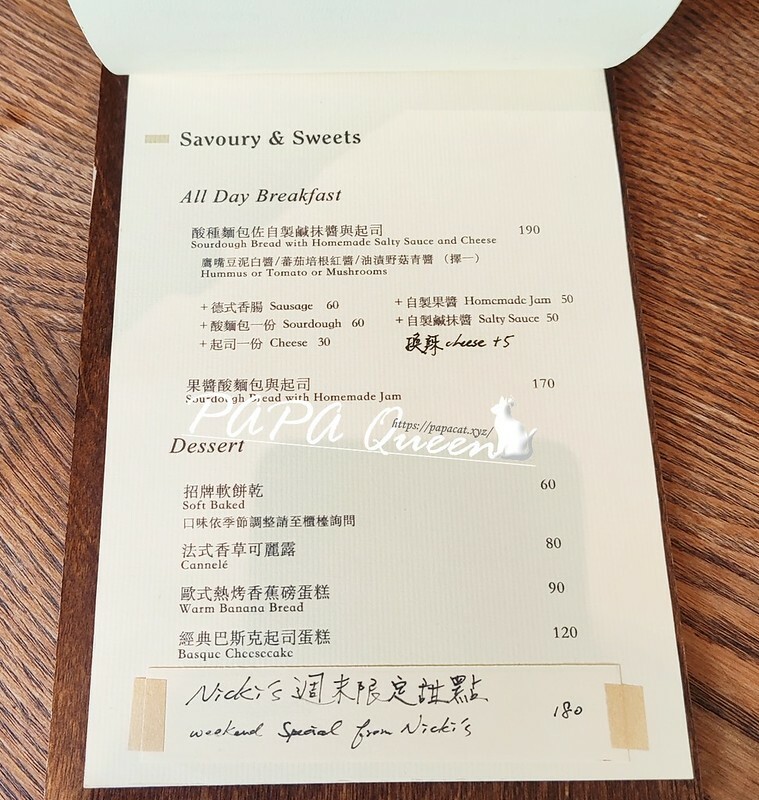 Savoury & Sweets
All Day Breakfast
酸種麵包佐自製鹹抹醬與起司 190
Sourdough Bread with Homemade Salty Sauce and Cheese
鷹嘴豆泥白醬/蕃茄培根紅醬/油漬野菇青醬 (擇一)
Hummus or Tomato or Mushrooms
+德式香腸 Sausage 60 +自製果醬 Homemade Jam 50
+酸麵包一份 Sourdough 60 +自製鹹抹醬 Salty Sauce 50
+起司一份 Cheese 30 換辣cheese +5
果醬酸麵包與起司 170
Sourdough Bread with Homemade Jam
PAPA Queen https://papacat.xyz/
Dessert
招牌軟餅乾 60
Soft Baked
口味依季節調整請至櫃檯詢問
法式香草可麗露 80
Cannelé
歐式熱烤香蕉磅蛋糕 90
Warm Banana Bread
經典巴斯克起司蛋糕 120
Basque Cheesecake
Nicki's 週末限定甜點 180
weekend Special from Nicki's